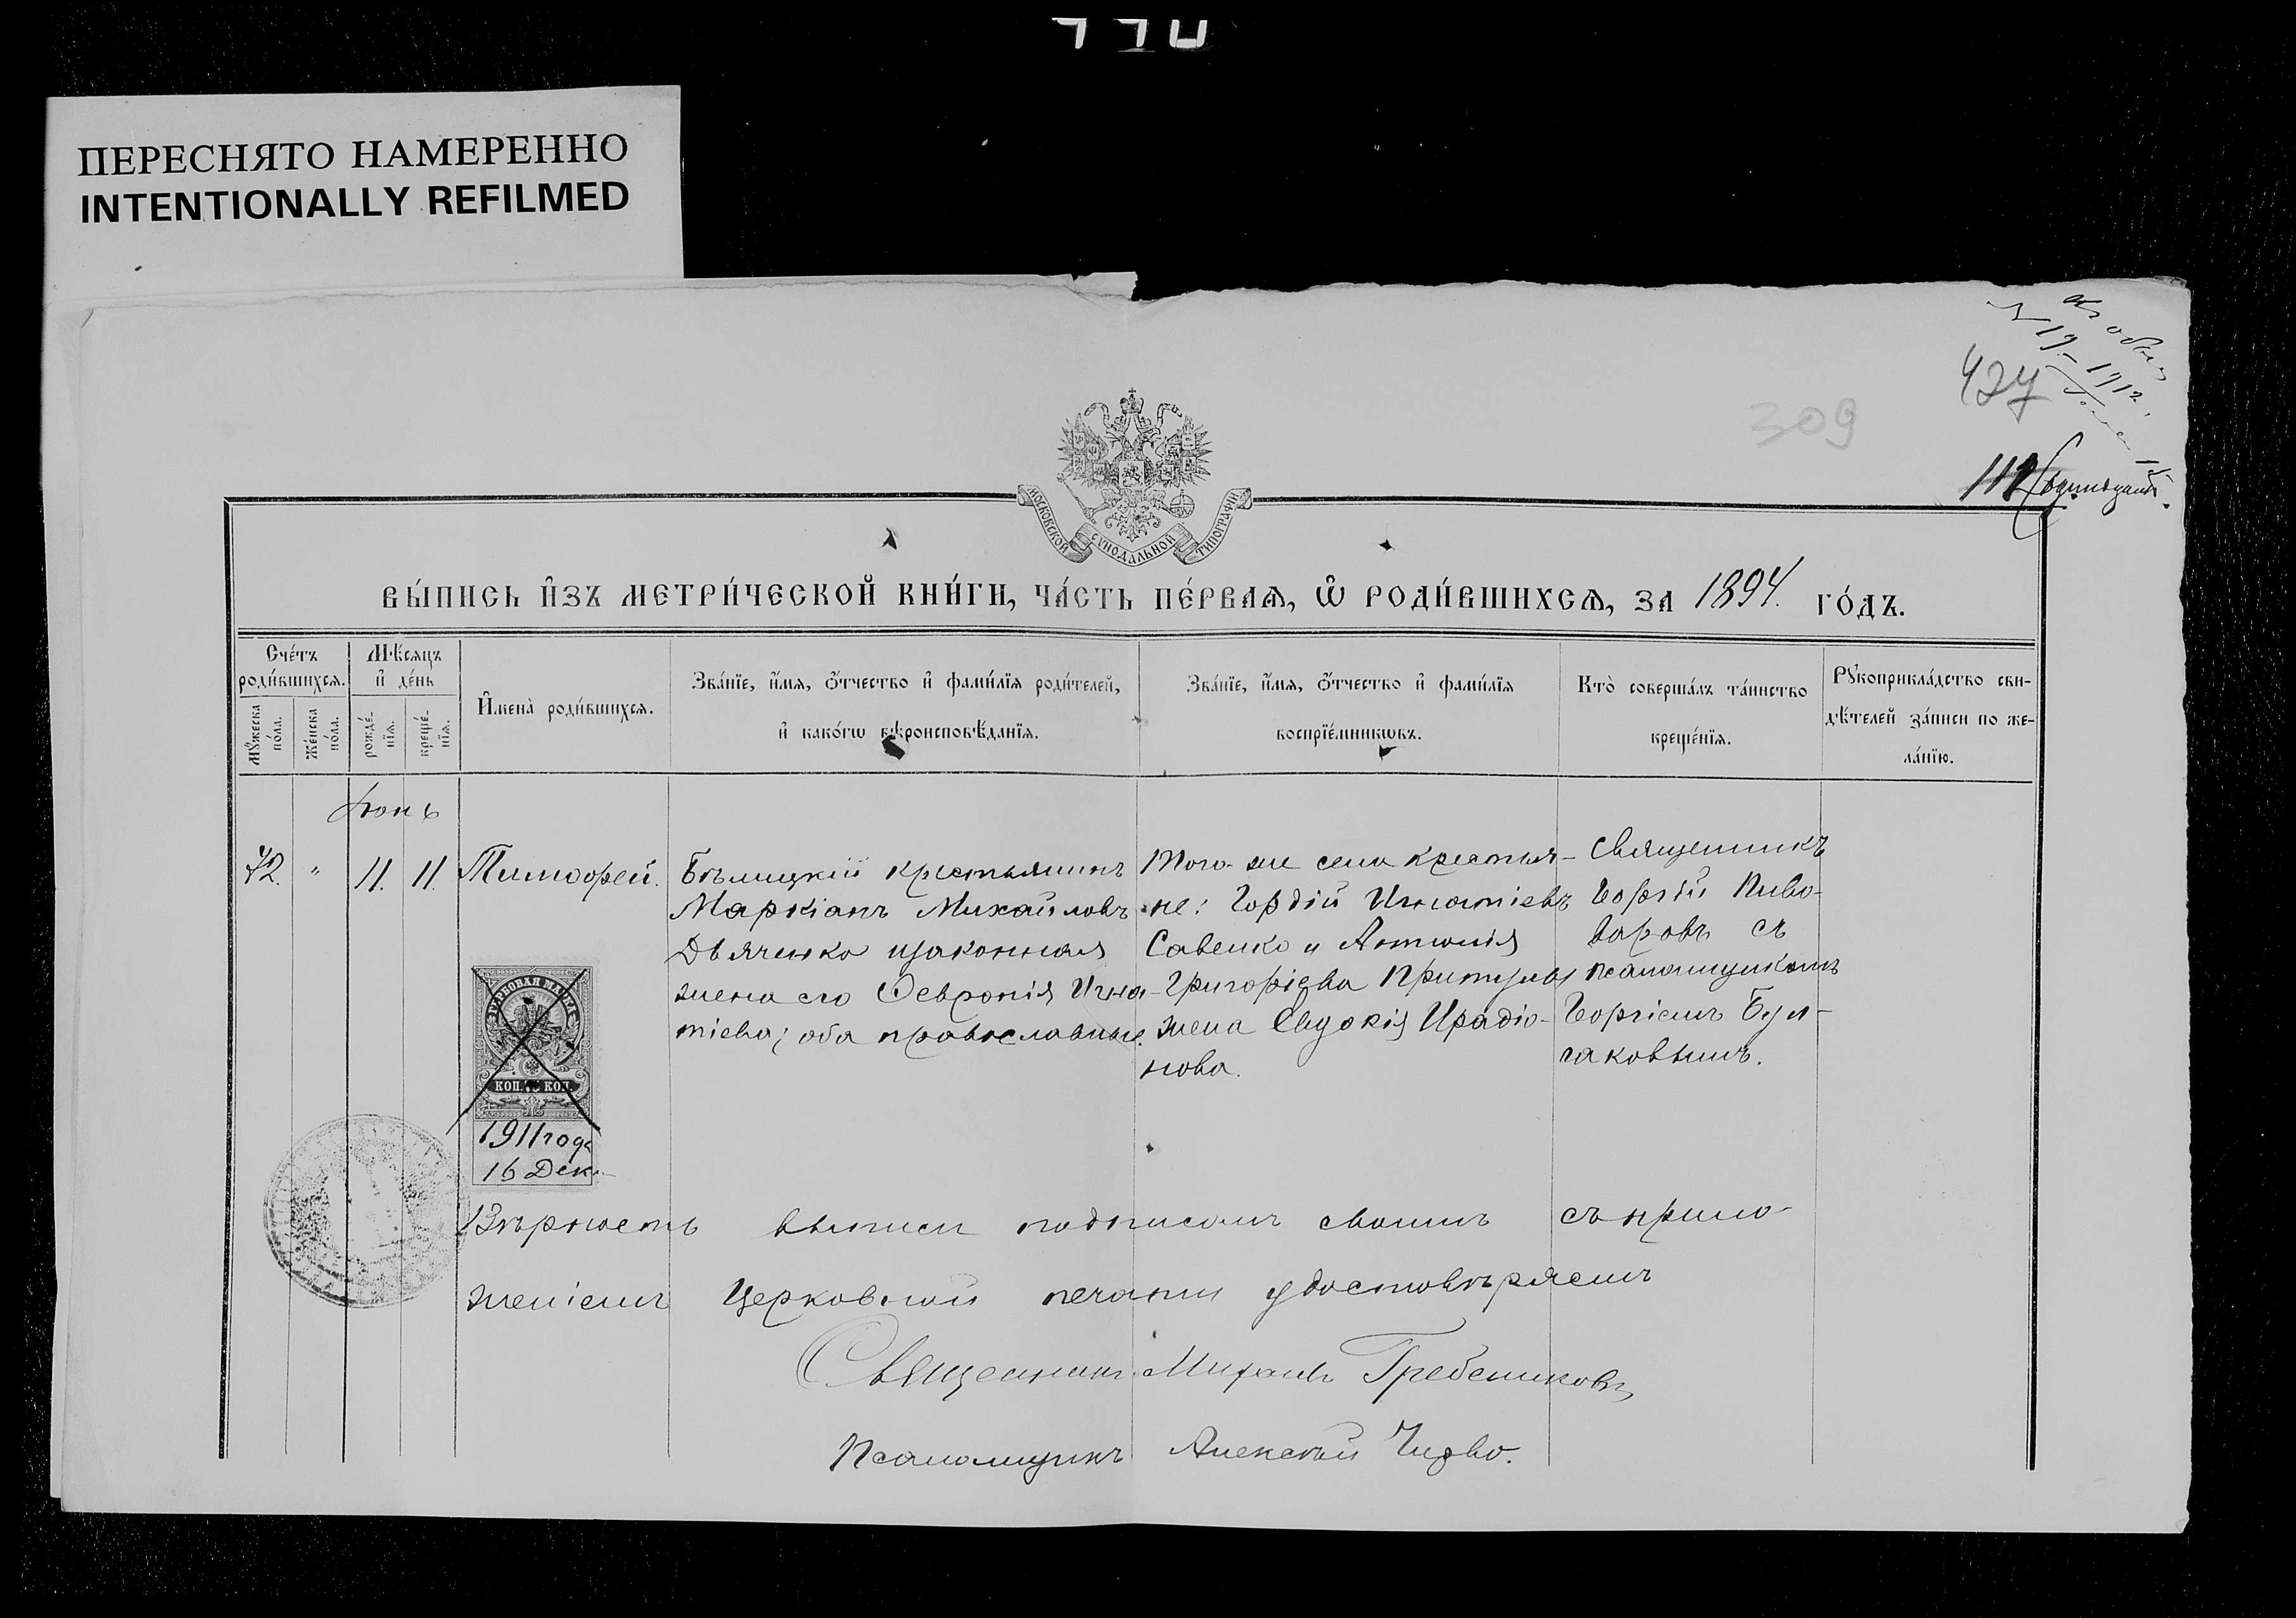 ПЕРЕСНЯТО НАМЕРЕННО
INTENTIONALLY REFILMED
N 19 - 1912
427
309
МОСКОВСКОЙ СУНОДАЛЬНОЙ ТИПОГРАФІИ
ВЫ́ПИСЬ И҆ЗЪ МЕТРИ́ЧЕСКОЙ КНИ́ГИ, ЧА́СТЬ ПЕ́РВАѦ, Ѽ РОДИ́ВШИХСѦ, ЗА 1894. ГО́ДЪ.
Сче́тъ роди́вшихсѧ.
Мꙋ́жеска по́ла.
Же́нска по́ла.
Мѣ́сяцъ и҆ де́нь
рожде́нїѧ.
креще́нїѧ.
И҆мена̀ роди́вшихсѧ.
Зва́нїе, и҆́мѧ, ѻ҆́тчество и҆ фами́лїѧ роди́телей,
и҆ како́гѡ вѣроисповѣ́данїѧ.
Зва́нїе, и҆́мѧ, ѻ҆́тчество и҆ фами́лїѧ
воспрїе́мникѡвъ.
Кто̀ соверша́лъ та́инство
креще́нїѧ.
Рꙋкоприкла́дство сви-
дѣ́телей за́писи по же-
ла́нїю.
Іюнь
72. " 11. 11. Тимоѳей.
Бѣлицкій крестьянинъ
Маркіанъ Михайловъ
Дьяченко изаконная
жена его Ѳевронія Игна-
тіева; оба православные.
Того-же села крестья-
не: Гордій Игнатіевъ
Савенко и Антонія
Григоріева Притулы
жена Евдокія Ирадіо-
нова.
Священникъ
Георгій Пиво-
варовъ съ
псаломщикомъ
Георгіемъ Бул-
гаковымъ.
ГЕРБОВАЯ МАРКА
КОП. КОП.
1911 года
16 Дек.
Вѣрность выписи подписомъ своимъ съ прило-
женіемъ Церковной печати удостовѣряемъ
Священникъ Михаилъ Гребениковъ
Псаломщикъ Алексѣй